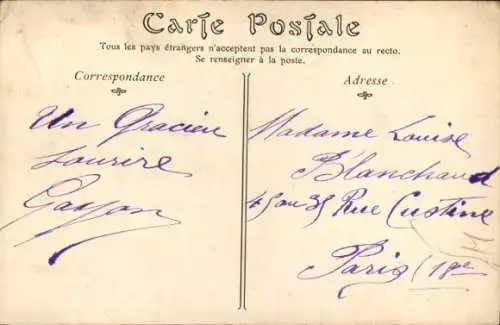 Carte Postale
Tous les pays étrangers n'acceptent pas la correspondance au recto.
Se renseigner à la poste.
Correspondance
Un Gracieu
Sourire
Adresse
Madame Louise
Blanchaud
Rue Custine
Paris (18e